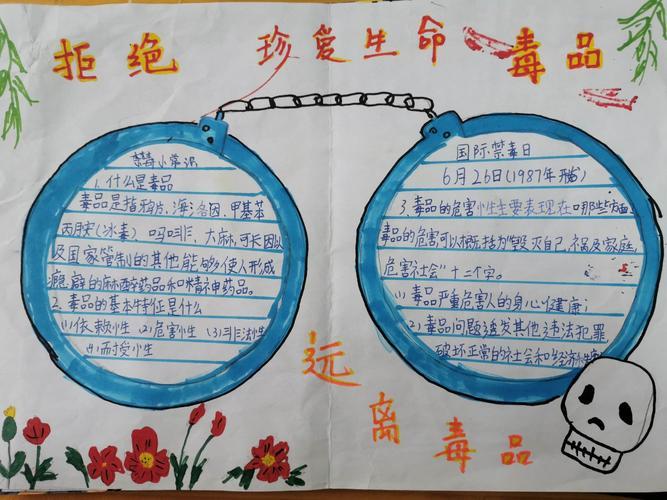 拒绝 珍爱生命 毒品
禁毒小常识
1.什么是毒品
毒品是指鸦片、海洛因、甲基苯
丙胺(冰毒)、吗啡、大麻、可卡因以
及国家管制的其他能够使人形成
瘾癖的麻醉药品和精神药品。
2.毒品的基本特征是什么
(1)依赖性 (2)危害性 (3)非法性
(4)耐受性
国际禁毒日
6月26日(1987年开始)
3.毒品的危害性主要表现在哪些方面
毒品的危害可以概括为"毁灭自己、祸及家庭、
危害社会"十二个字。
(1)毒品严重危害人的身心健康;
(2)毒品问题诱发其他违法犯罪
破坏正常的社会和经济
远离毒品